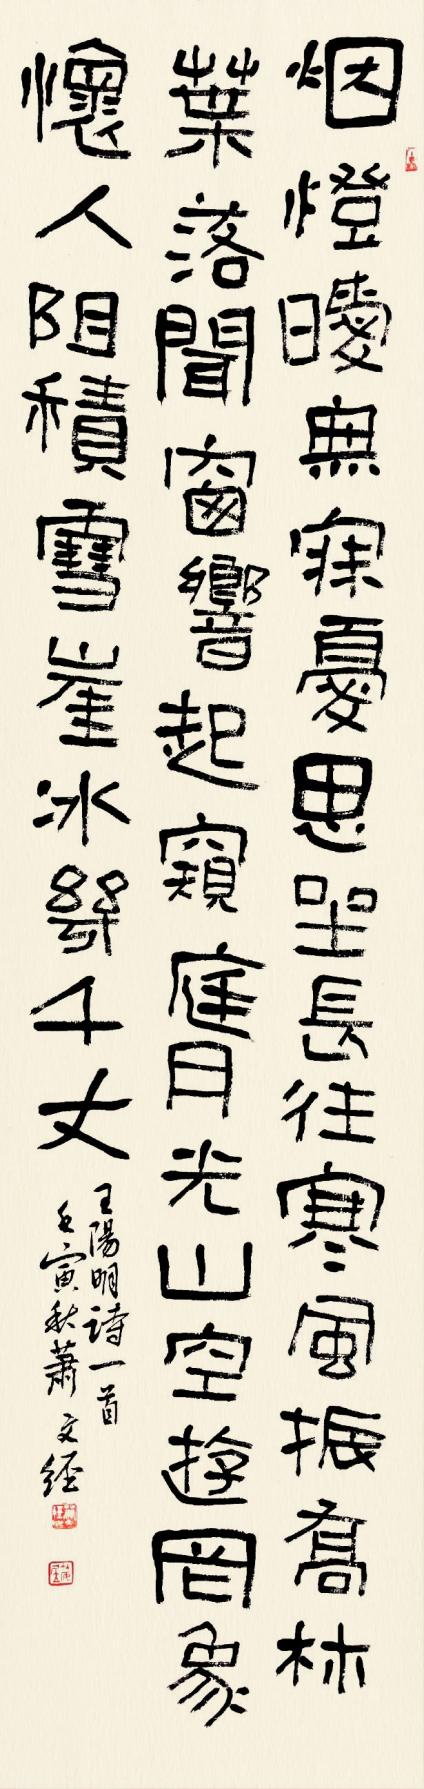 烟燈曖無寐憂思坐長往寒風振喬林
葉落聞窗響起窺庭月光山空遊罔象
懷人阻積雪崖冰幾千丈
王陽明詩一首
壬寅秋蕭文經